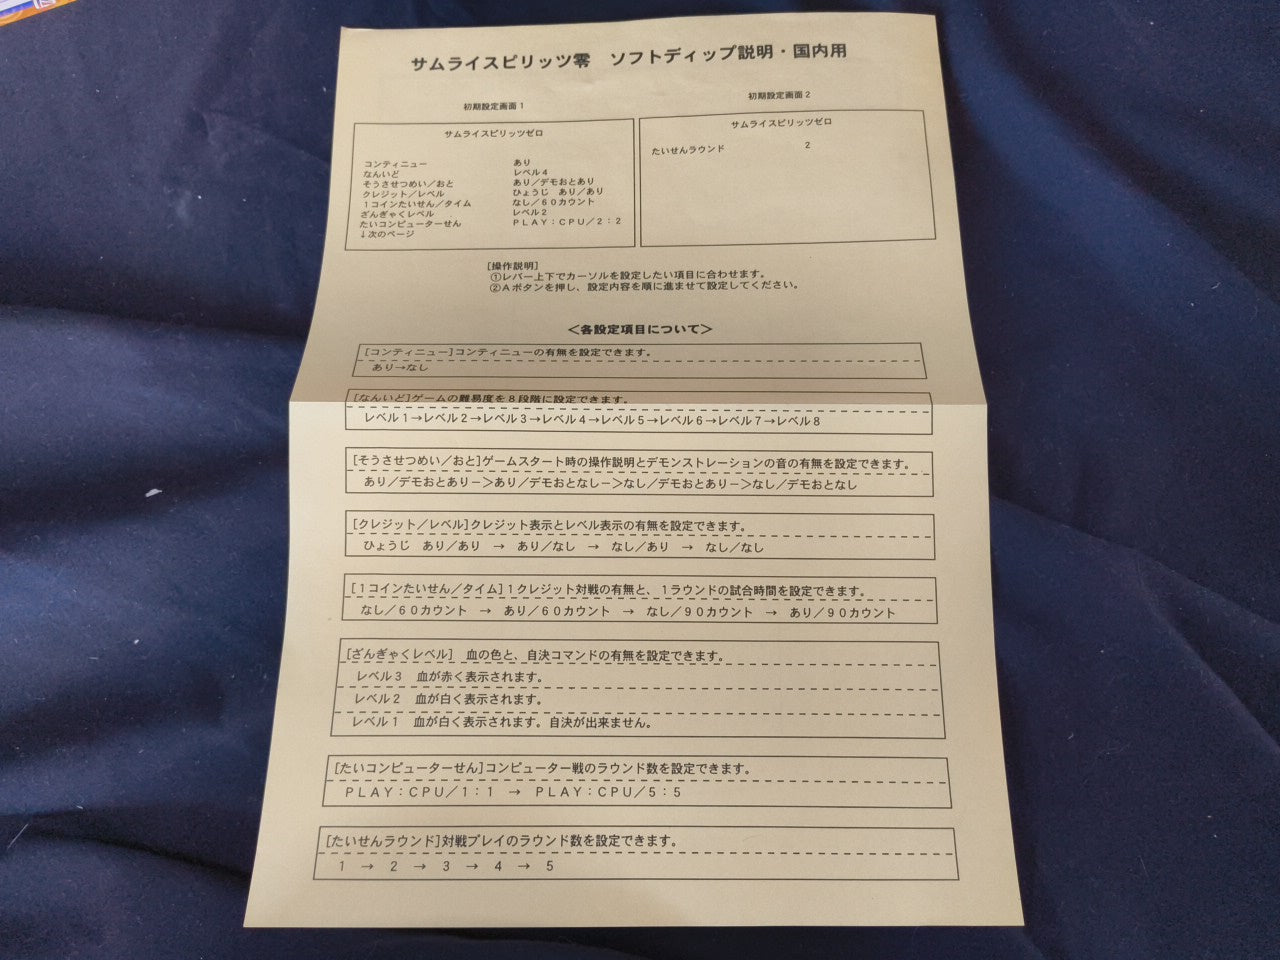 サムライスピリッツ零　ソフトディップ説明・国内用
初期設定画面１
サムライスピリッツゼロ
コンティニュー　あり
なんいど　レベル４
そうさせつめい／おと　あり／デモおとあり
クレジット／レベル　ひょうじ　あり／あり
１コインたいせん／タイム　なし／６０カウント
ざんぎゃくレベル　レベル２
たいコンピューターせん　ＰＬＡＹ：ＣＰＵ／２：２
↓次のページ
初期設定画面２
サムライスピリッツゼロ
たいせんラウンド　２
［操作説明］
①レバー上下でカーソルを設定したい項目に合わせます。
②Ａボタンを押し、設定内容を順に進ませて設定してください。
＜各設定項目について＞
［コンティニュー］コンティニューの有無を設定できます。
あり→なし
［なんいど］ゲームの難易度を８段階に設定できます。
レベル１→レベル２→レベル３→レベル４→レベル５→レベル６→レベル７→レベル８
［そうさせつめい／おと］ゲームスタート時の操作説明とデモンストレーションの音の有無を設定できます。
あり／デモおとありー＞あり／デモおとなしー＞なし／デモおとありー＞なし／デモおとなし
［クレジット／レベル］クレジット表示とレベル表示の有無を設定できます。
ひょうじ　あり／あり　→　あり／なし　→　なし／あり　→　なし／なし
［１コインたいせん／タイム］１クレジット対戦の有無と、１ラウンドの試合時間を設定できます。
なし／６０カウント　→　あり／６０カウント　→　なし／９０カウント　→　あり／９０カウント
［ざんぎゃくレベル］　血の色と、自決コマンドの有無を設定できます。
レベル３　血が赤く表示されます。
レベル２　血が白く表示されます。
レベル１　血が白く表示されます。自決が出来ません。
［たいコンピューターせん］コンピューター戦のラウンド数を設定できます。
ＰＬＡＹ：ＣＰＵ／１：１　→　ＰＬＡＹ：ＣＰＵ／５：５
［たいせんラウンド］対戦プレイのラウンド数を設定できます。
１　→　２　→　３　→　４　→　５